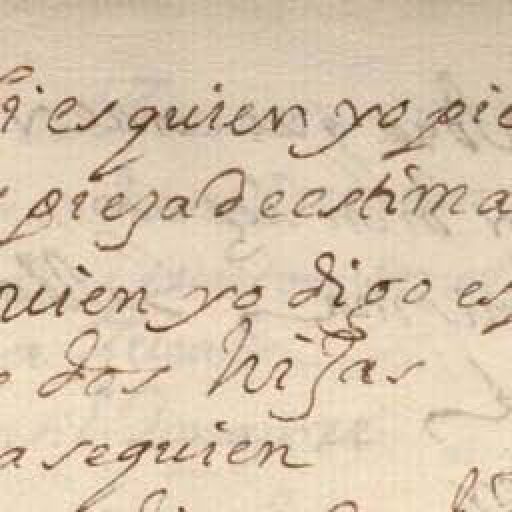 si es quien yo pie
pieza de estima
quien yo digo es
dos hijas
ya se quien